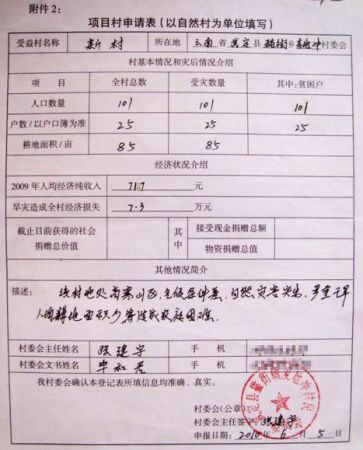 附件2：
项目村申请表（以自然村为单位填写）
受益村名称 新村 所在地 云南省武定县 乡 村委会
村基本情况和灾后情况介绍
项目 全村总数 受灾数量 其中：贫困户
人口数量 101 101 101
户数/以户口簿为准 25 25 25
耕地面积/亩 85 85
经济状况介绍
2009年人均经济纯收入 717 元
旱灾造成全村经济损失 7.3 万元
截止目前获得的社会捐赠总价值 其中 接受现金捐赠总额
物资捐赠总值
其他情况简介
描述： 该村地处高寒山区，气候条件差，自然灾害突出，
人均耕地面积少等造成家庭困难。
村委会主任姓名 张建宇 手机
村委会文书姓名 毕和 手机
我村委会确认本登记表所填信息均准确、真实。
村委会（公章）
村委会主任签字 张建宇
申报日期：2010年6月5日